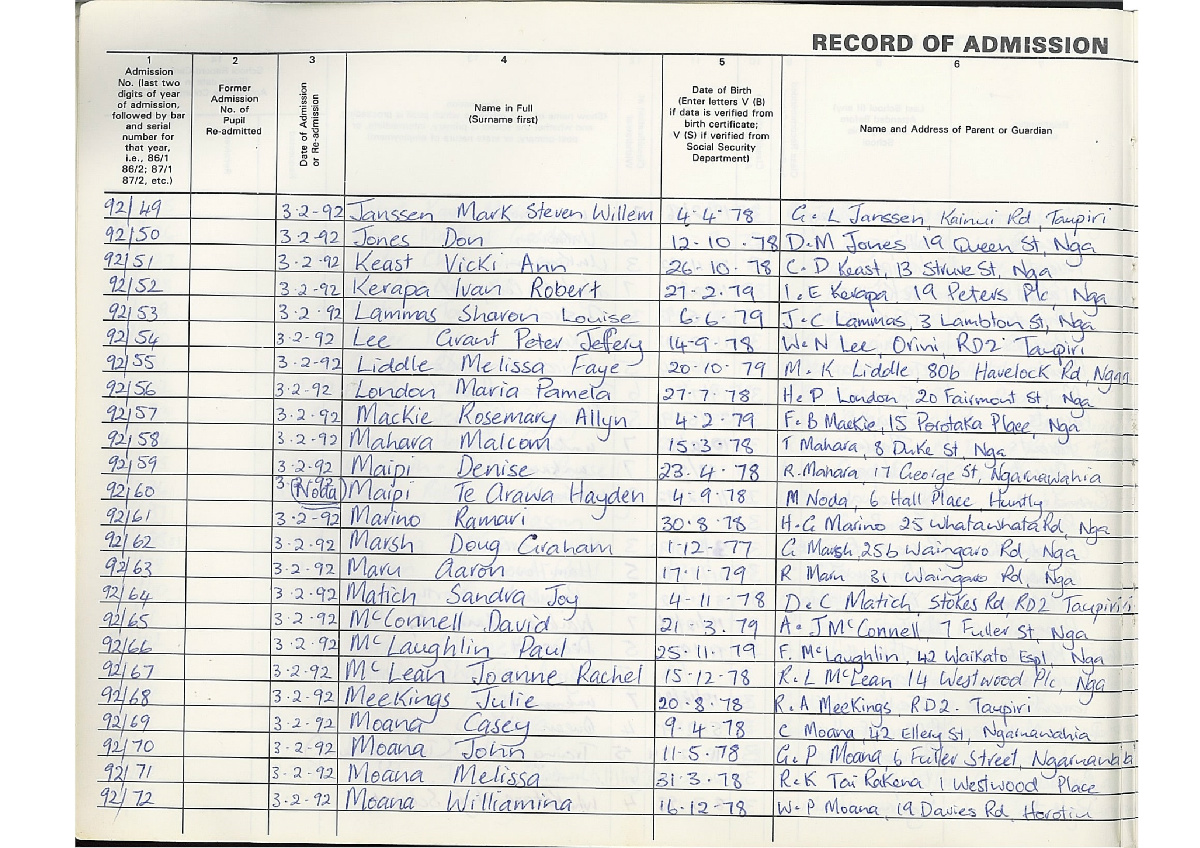 RECORD OF ADMISSION
1 2 3 4 5 6
Admission No. (last two digits of year of admission, followed by bar and serial number for that year, i.e., 86/1 86/2; 87/1 87/2, etc.)
Former Admission No. of Pupil Re-admitted
Date of Admission or Re-admission
Name in Full (Surname first)
Date of Birth (Enter letters V (B) if data is verified from birth certificate; V (S) if verified from Social Security Department)
Name and Address of Parent or Guardian
92/49 3·2-92 Janssen Mark Steven Willem 4·4·78 G. L Janssen, Kainui Rd, Taupiri
92/50 3·2-92 Jones Don 12·10·78 D.M Jones 19 Queen St, Nga
92/51 3·2-92 Keast Vicki Ann 26·10·78 C. D Keast, 13 Struve St, Nga
92/52 3·2·92 Kerapa Ivan Robert 27·2·79 I. E Kerapa, 19 Peters Plc, Nga
92/53 3·2·92 Lammas Sharon Louise 6·6·79 J.C Lammas, 3 Lambton St, Nga
92/54 3·2-92 Lee Grant Peter Jeffery 14-9·78 W.N Lee, Orini, RD2 Taupiri
92/55 3·2-92 Liddle Melissa Faye 20·10·79 M. K Liddle, 80b Havelock Rd, Ngaa
92/56 3·2-92 London Maria Pamela 27·7·78 H. P London, 20 Fairmont St, Nga
92/57 3·2-92 Mackie Rosemary Allyn 4·2·79 F. B Mackie, 15 Porotaka Place, Nga
92/58 3·2-92 Mahara Malcom 15·3·78 T Mahara, 8 Duke St, Nga
92/59 3·2-92 Maipi Denise 23·4·78 R. Mahara, 17 George St, Ngaruawahia
92/60 (Noda) Maipi Te Arawa Hayden 4·9·78 M Noda, 6 Hall Place, Huntly
92/61 3·2-92 Marino Ramari 30·8·78 H.G Marino 25 Whatawhata Rd, Nga
92/62 3·2-92 Marsh Doug Graham 1·12-77 G Marsh, 25b Waingaro Rd, Nga
92/63 3·2-92 Maru Aaron 17·1·79 R 31 Waingaro Rd, Nga
92/64 3·2-92 Matich Sandra Joy 4-11·78 D. C Matich, Stokes Rd RD2 Taupiri
92/65 3·2-92 McConnell David 21·3·79 A. J McConnell, 7 Fuller St, Nga
92/66 3·2-92 McLaughlin Paul 25·11·79 F. McLaughlin, 42 Waikato Espl, Nga
92/67 3·2-92 McLean Joanne Rachel 15·12-78 R. L McLean 14 Westwood Plc, Nga
92/68 3·2-92 Meekings Julie 20·8·78 R. A Meekings, RD2. Taupiri
92/69 3·2-92 Moana Casey 9·4·78 C Moana, 42 Ellery St, Ngaruawahia
92/70 3·2-92 Moana John 11-5·78 G. P Moana, 6 Fuller Street,
92/71 3·2-92 Moana Melissa 31·3·78 R.K Tai Rakena, 1 Westwood Place
92/72 3·2-92 Moana Williamina 16·12-78 W. P Moana, 19 Davies Rd, Horotiu